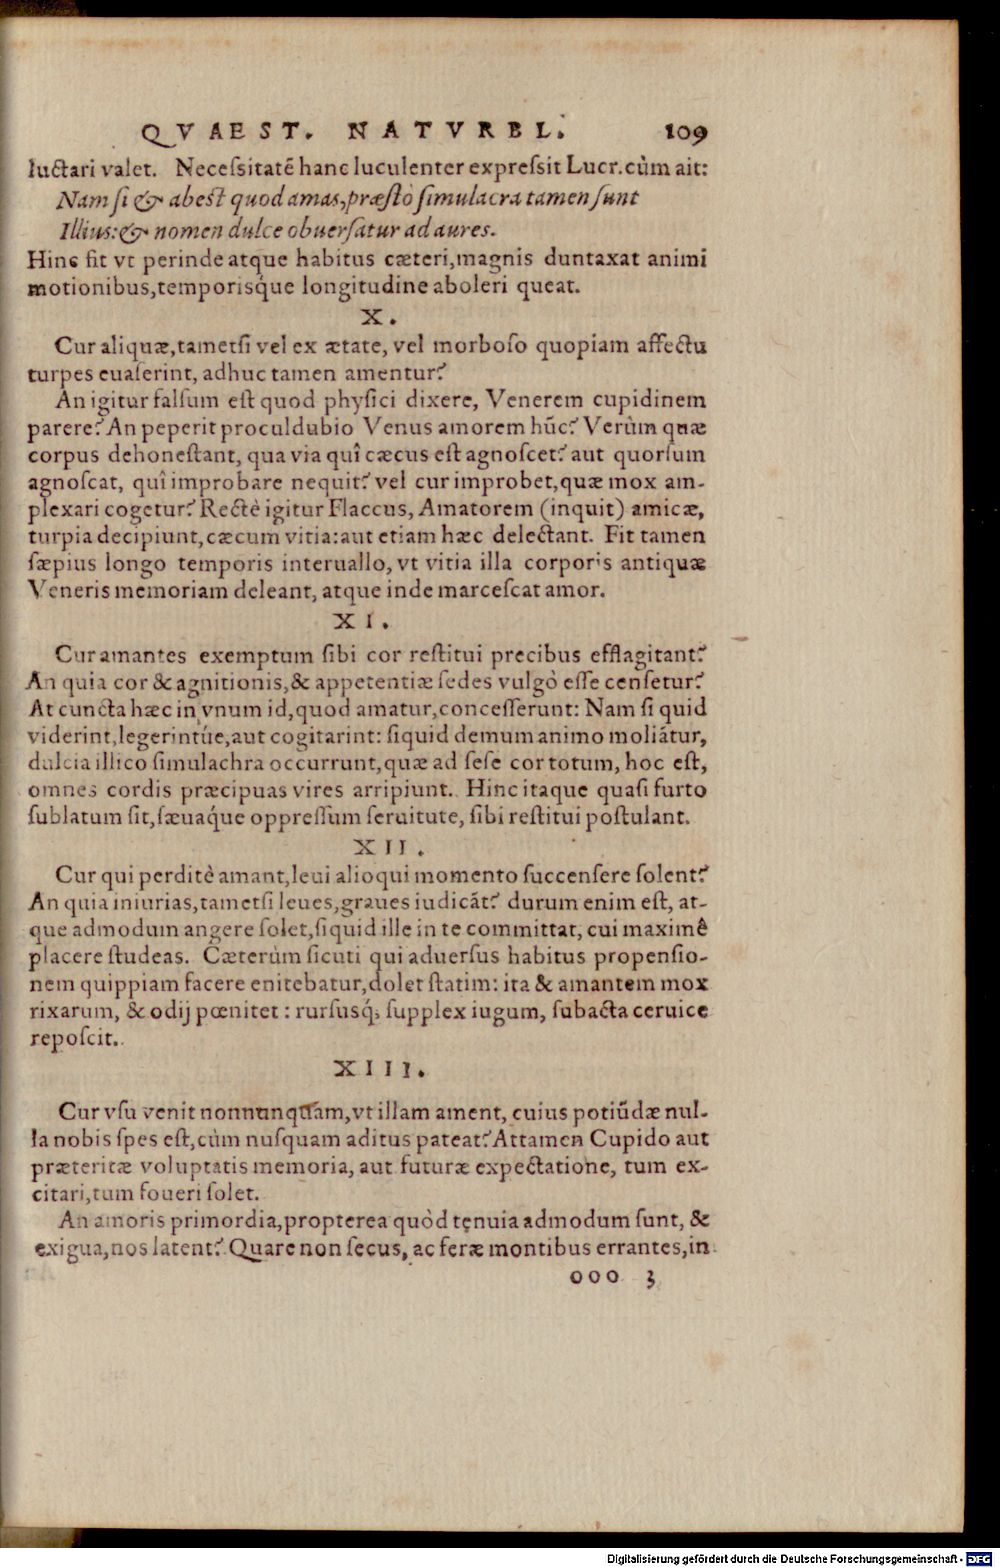 QVAEST. NATVREL. 109
luctari valet. Necessitatē hanc luculenter expressit Lucr. cùm ait:
Nam si & abest quod amas, præstò simulacra tamen sunt
Illius: & nomen dulce obuersatur ad aures.
Hinc fit vt perinde atque habitus cæteri, magnis duntaxat animi
motionibus, temporisq́ue longitudine aboleri queat.
X.
Cur aliquæ, tametsi vel ex ætate, vel morboso quopiam affectu
turpes euaserint, adhuc tamen amentur?
An igitur falsum est quod physici dixere, Venerem cupidinem
parere? An peperit proculdubio Venus amorem hūc? Verùm quæ
corpus dehonestant, qua via quî cæcus est agnoscet? aut quorsum
agnoscat, quî improbare nequit? vel cur improbet, quæ mox am-
plexari cogetur? Rectè igitur Flaccus, Amatorem (inquit) amicæ,
turpia decipiunt, cæcum vitia: aut etiam hæc delectant. Fit tamen
sæpius longo temporis interuallo, vt vitia illa corporis antiquæ
Veneris memoriam deleant, atque inde marcescat amor.
XI.
Cur amantes exemptum sibi cor restitui precibus efflagitant?
An quia cor & agnitionis, & appetentiæ sedes vulgò esse censetur?
At cuncta hæc in vnum id, quod amatur, concesserunt: Nam si quid
viderint, legerintúe, aut cogitarint: siquid demum animo moliātur,
dulcia illico simulachra occurrunt, quæ ad sese cor totum, hoc est,
omnes cordis præcipuas vires arripiunt. Hinc itaque quasi furto
sublatum sit, sæuaq́ue oppressum seruitute, sibi restitui postulant.
XII.
Cur qui perditè amant, leui alioqui momento succensere solent?
An quia iniurias, tametsi leues, graues iudicāt? durum enim est, at-
que admodum angere solet, siquid ille in te committat, cui maximê
placere studeas. Cæterùm sicuti qui aduersus habitus propensio-
nem quippiam facere enitebatur, dolet statim: ita & amantem mox
rixarum, & odij pœnitet: rursusq́; supplex iugum, subacta ceruice
reposcit.
XIII.
Cur vsu venit nonnunquam, vt illam ament, cuius potiūdæ nul-
la nobis spes est, cùm nusquam aditus pateat? Attamen Cupido aut
præteritæ voluptatis memoria, aut futuræ expectatione, tum ex-
citari, tum foueri solet.
An amoris primordia, propterea quòd tenuia admodum sunt, &
exigua, nos latent? Quare non secus, ac feræ montibus errantes, in
ooo 3
Digitalisierung gefördert durch die Deutsche Forschungsgemeinschaft - DFG